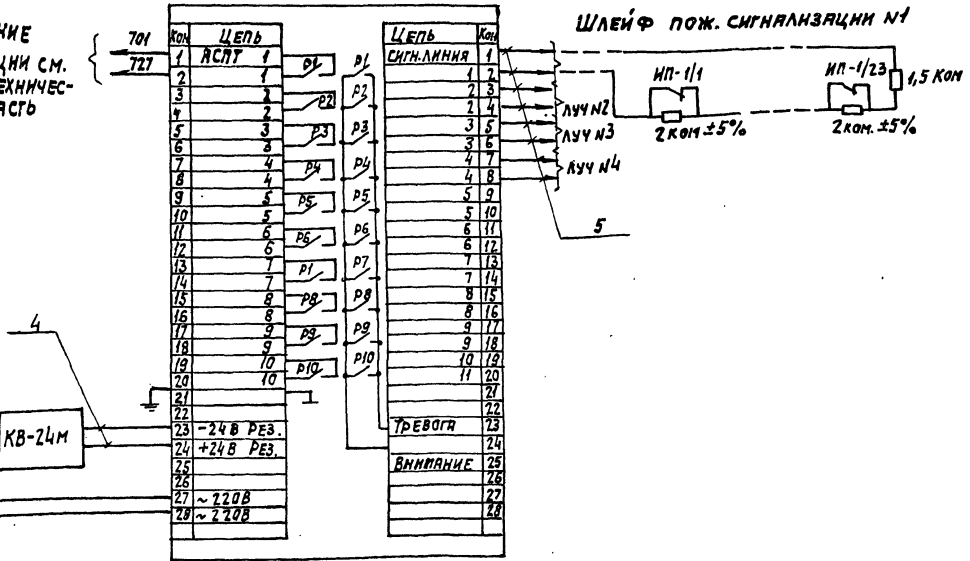 КИЕ
ЦИИ СМ.
ЕХНИЧЕС-
АСТЬ
701
727
КОН ЦЕПЬ
1 АСПТ 1
2 1
3 2
4 2
5 3
6 3
7 4
8 4
9 5
10 5
11 6
12 6
13 7
14 7
15 8
16 8
17 9
18 9
19 10
20 10
21
22
23 -24В РЕЗ.
24 +24В РЕЗ.
25
26
27 ~220В
28 ~220В
P1
P2
P3
P4
P5
P6
P1
P8
P9
P10
P1
P2
P3
P4
P5
P6
P7
P8
P9
P10
ЦЕПЬ КОН
СИГН.ЛИНИЯ 1
1 2
2 3
2 4
3 5
3 6
4 7
4 8
5 9
5 10
6 11
6 12
7 13
7 14
8 15
8 16
9 17
9 18
10 19
11 20
21
22
ТРЕВОГА 23
24
ВНИМАНИЕ 25
26
27
28
ШЛЕЙФ ПОЖ. СИГНАЛИЗАЦИИ N1
ИП-1/1
2 КОМ ±5%
ИП-1/23
2 КОМ. ±5%
1,5 КОМ
ЛУЧ N2
ЛУЧ N3
ЛУЧ N4
5
4
КВ-24М